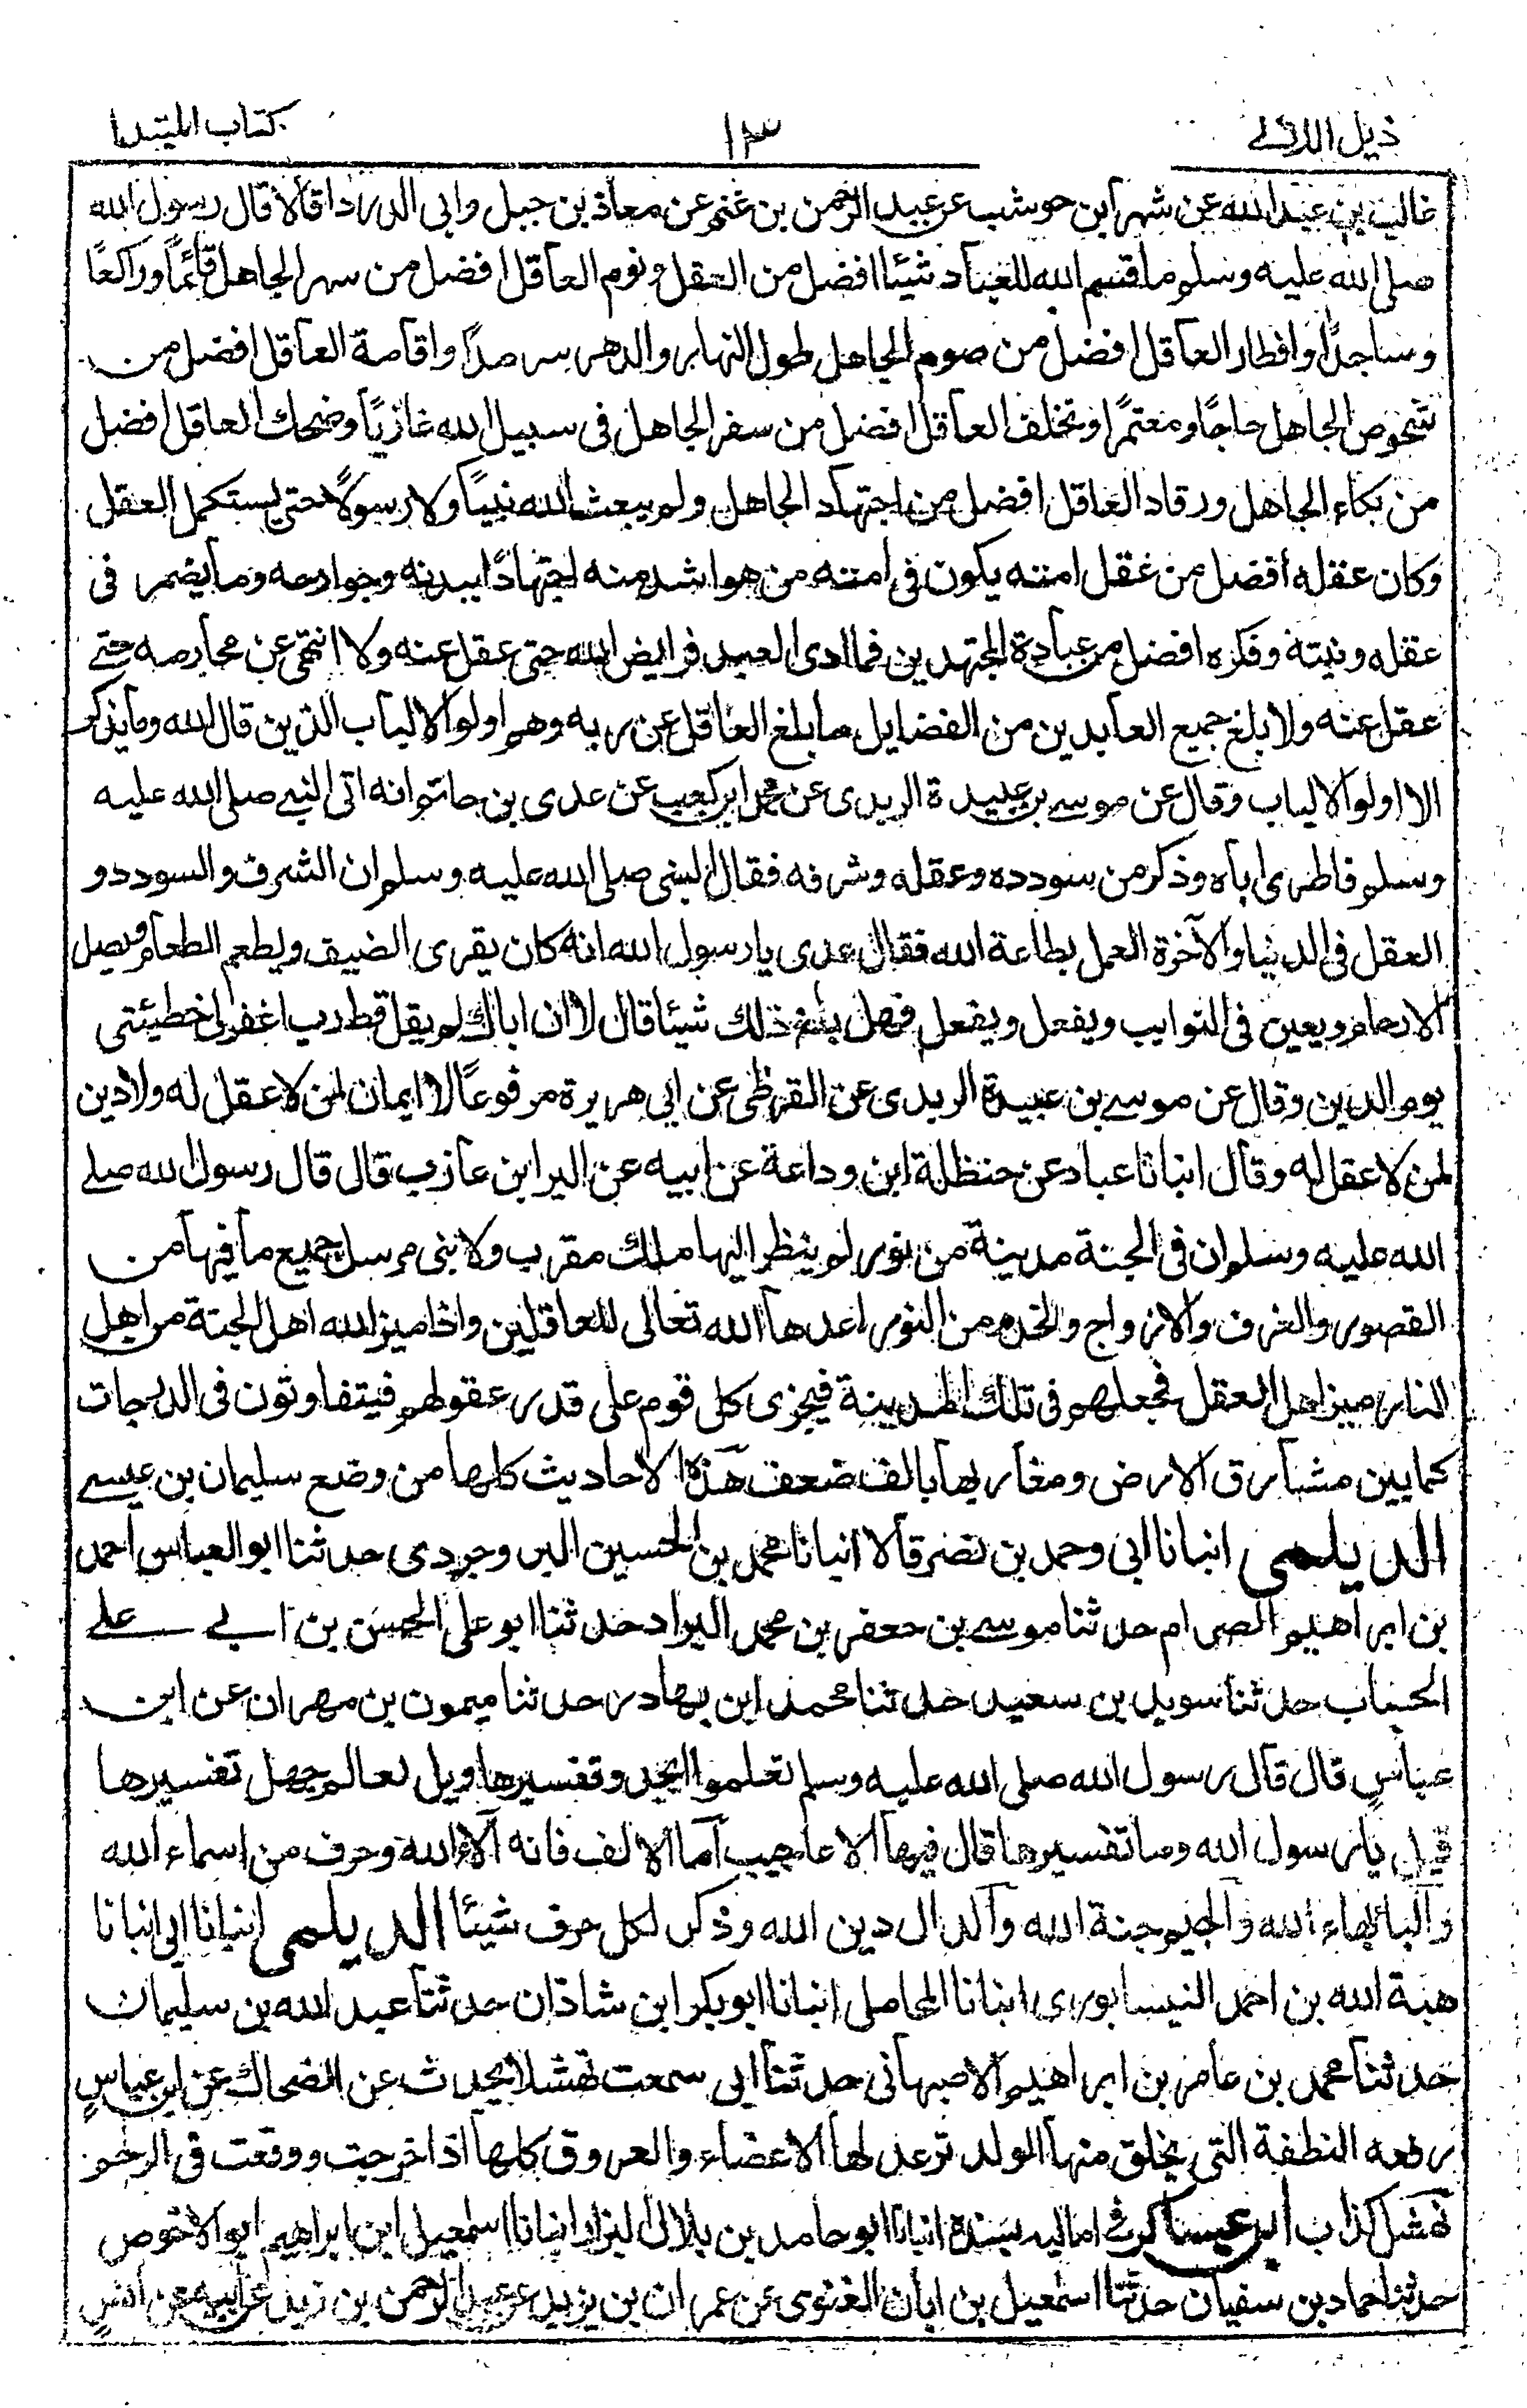 ذيل اللآلي
١٣
كتاب المبتدا
غالب بن عبد الله عن شهر ابن حوشب عن عبد الرحمن بن غنم عن معاذ بن جبل وابى الدرداء قالا قال رسول الله
صلى الله عليه وسلم ما قسم الله للعباد شيئا افضل من العقل ونوم العاقل افضل من سهر الجاهل قائماً وراكعاً
وساجداً وافطار العاقل افضل من صوم الجاهل طول النهار والدهر سرمداً واقامة العاقل افضل من
شخوص الجاهل حاجاً ومعتمراً وتخلف العاقل افضل من سفر الجاهل فى سبيل الله غازياً وضحك العاقل افضل
من بكاء الجاهل ورقاد العاقل افضل من اجتهاد الجاهل ولم يبعث الله نبياً ولا رسولاً حتى يستكمل العقل
وكان عقله افضل من عقل امته يكون فى امته من هو اشد منه اجتهاداً ببدنه وجوارحه وما يضمر فى
عقله ونيته وفكره افضل من عبادة المجتهدين فما ادى العبد فرايض الله حتى عقل عنه ولا انتهى عن محارمه حتے
عقل عنه ولا بلغ جميع العابدين من الفضايل ما بلغ العاقل عن ربه وهم اولوا الالباب الذين قال الله وما يذكر
الا اولوا الالباب وقال عن موسے بن عبيدة الربدى عن محمد ابن كعب عن عدى بن حاتم انه اتى النبے صلى الله عليه
وسلم فاطرى اباه وذكر من سودده وعقله وشرفه فقال النبى صلى الله عليه وسلم ان الشرف والسودد و
العقل فى الدنيا والآخرة العمل بطاعة الله فقال عدى يا رسول الله انه كان يقرى الضيف ويطعم الطعام ويصل
الارحام ويعين فى النوايب ويفعل ويفعل فهل ذلك شيئا قال لا ان اباك لم يقل قط رب اغفر لى خطيئتى
يوم الدين وقال عن موسے بن عبيدة الربدى عن القرظى عن ابى هريرة مرفوعاً لا ايمان لمن لا عقل له ولا دين
لمن لا عقل له وقال انبانا عباد عن حنظلة ابن وداعة عن ابيه عن البرا ابن عازب قال قال رسول الله صلے
الله عليه وسلم ان فى الجنة مدينة من نور لم ينظر اليها ملك مقرب ولا نبى مرسل جميع ما فيها من
القصور والغرف والازواج والخدم من النور اعدها الله تعالى للعاقلين واذا ميز الله اهل الجنة من اهل
النار ميز اهل العقل فجعلهم فى تلك المدينة فيجزى كل قوم على قدر عقولهم فيتفاوتون فى الدرجات
كما بين مشارق الارض ومغاربها بالف ضعف هذه الاحاديث كلها من وضع سليمان بن عيسے
الديلمى انبانا ابى وحمد بن نصر قالا انبانا محمد بن الحسين البروجردى حدثنا ابو العباس احمد
بن ابراهيم الصرام حدثنا موسے بن جعفر بن محمد البراد حدثنا ابو على الحسن بن ابے علے
الحنباب حدثنا سويد بن سعيد حدثنا محمد ابن بهادر حدثنا ميمون بن مهران عن ابن
عباس قال قال رسول الله صلى الله عليه وسلم تعلموا ابجد وتفسيرها ويل لعالم جهل تفسيرها
قيل يا رسول الله وما تفسيرها قال فيها الاعاجيب اما الالف فانه آلاء الله وحرف من اسماء الله
والباء بهاء الله والجيم جنة الله والدال دين الله وذكر لكل حرف شيئا الديلمى انبانا ابى انبانا
هبة الله بن احمد النيسابورى انبانا المحاملى انبانا ابو بكر ابن شاذان حدثنا عبد الله بن سليمان
حدثنا محمد بن عامر بن ابراهيم الاصبهانى حدثنا ابى سمعت نهشلا يحدث عن الضحاك عن ابن عباس
رفعه النطفة التى يخلق منها الولد ترعد لها الاعضاء والعروق كلها اذا خرجت ووقعت فى الرحم
نهشل كذاب ابن عساكر فے اماليه بسنده انبانا ابو حامد بن بلال البزاز انبانا اسمعيل ابن ابراهيم ابو الاخوص
حدثنا حماد بن سفيان حدثنا اسمعيل بن ابان الغنوى عن عمران بن يزيد عن عبد الرحمن بن زيد عن ابيه عن انس